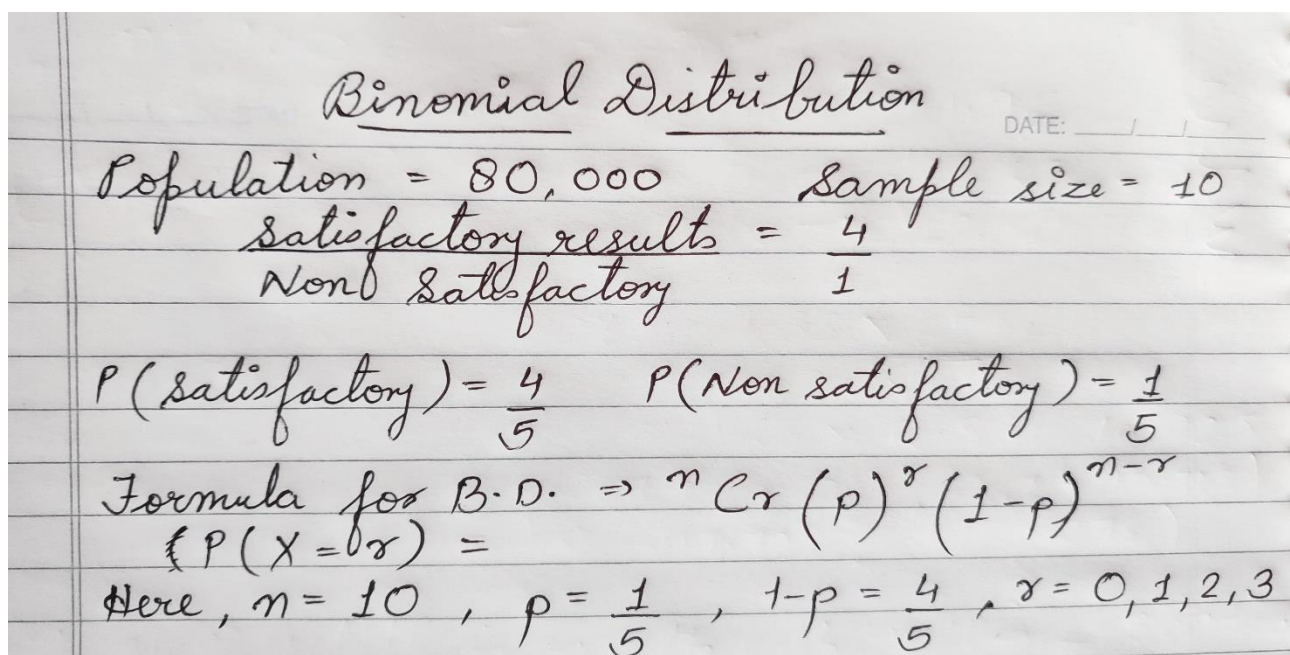 Binomial Distribution
DATE: __/__/__
Population = 80,000 Sample size = 10
Satisfactory results = 4
Non Satisfactory 1
P(satisfactory) = 4/5 P(Non satisfactory) = 1/5
Formula for B.D. ⇒ ⁿCr (p)ʳ (1-p)ⁿ⁻ʳ
P(X=r) =
Here, n = 10, p = 1/5, 1-p = 4/5, r = 0,1,2,3